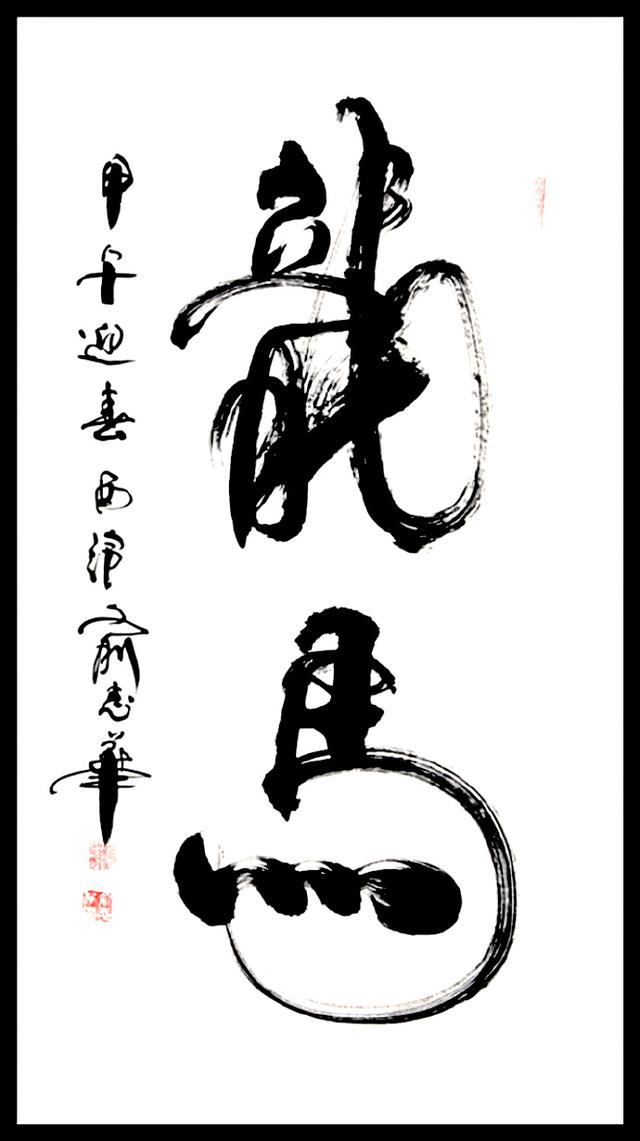 龍馬
甲午迎春西津俞志華